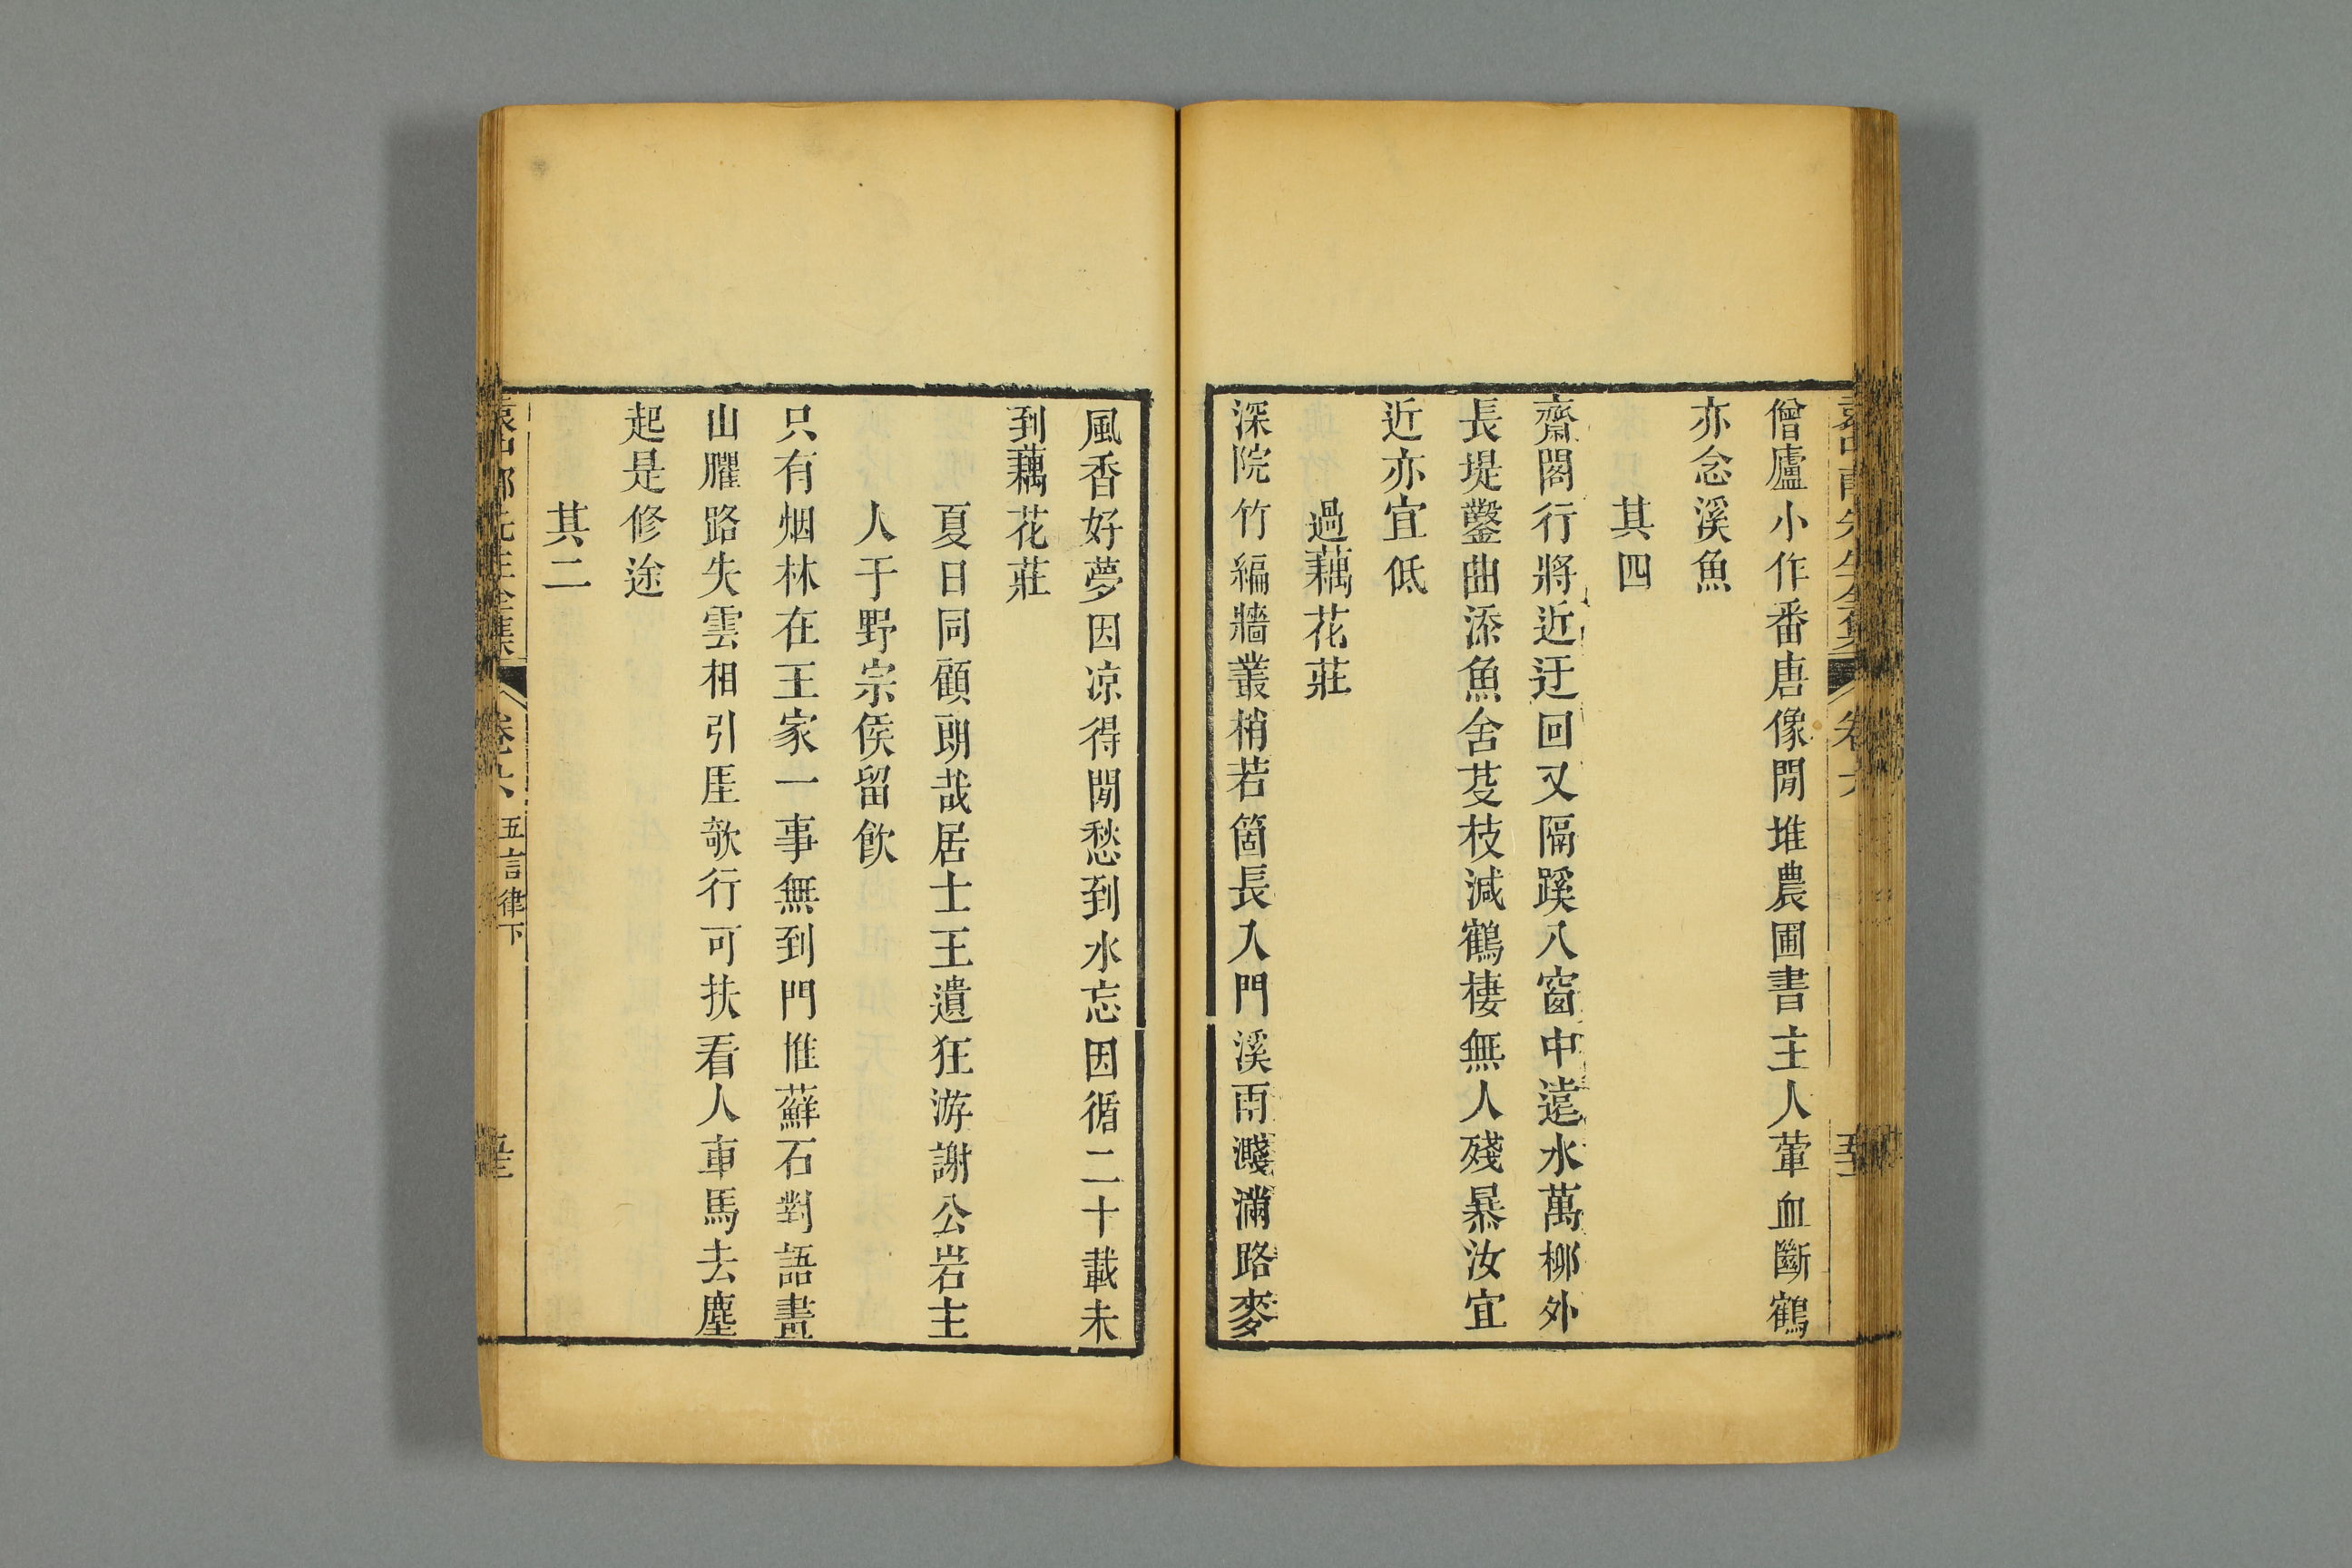 僧廬小作番唐像閒堆農圃書主人葷血斷鶴
亦念溪魚
其四
齋閣行將近迂回又隔蹊八窗中遠水萬柳外
長堤鑿曲添魚舍芟枝減鶴棲無人殘暴汝宜
近亦宜低
過藕花莊
深院竹編牆叢梢若箇長入門溪雨濺滿路麥
風香好夢因凉得閒愁到水忘因循二十載未
到藕花莊
夏日同顧朗哉居士王遺狂游謝公岩主
人于野宗侯留飲
只有烟林在王家一事無到門惟蘚石對語晝
山臞路失雲相引厓欹行可扶看人車馬去塵
起是修途
其二
袁中郎先生全集
卷六
五言律下